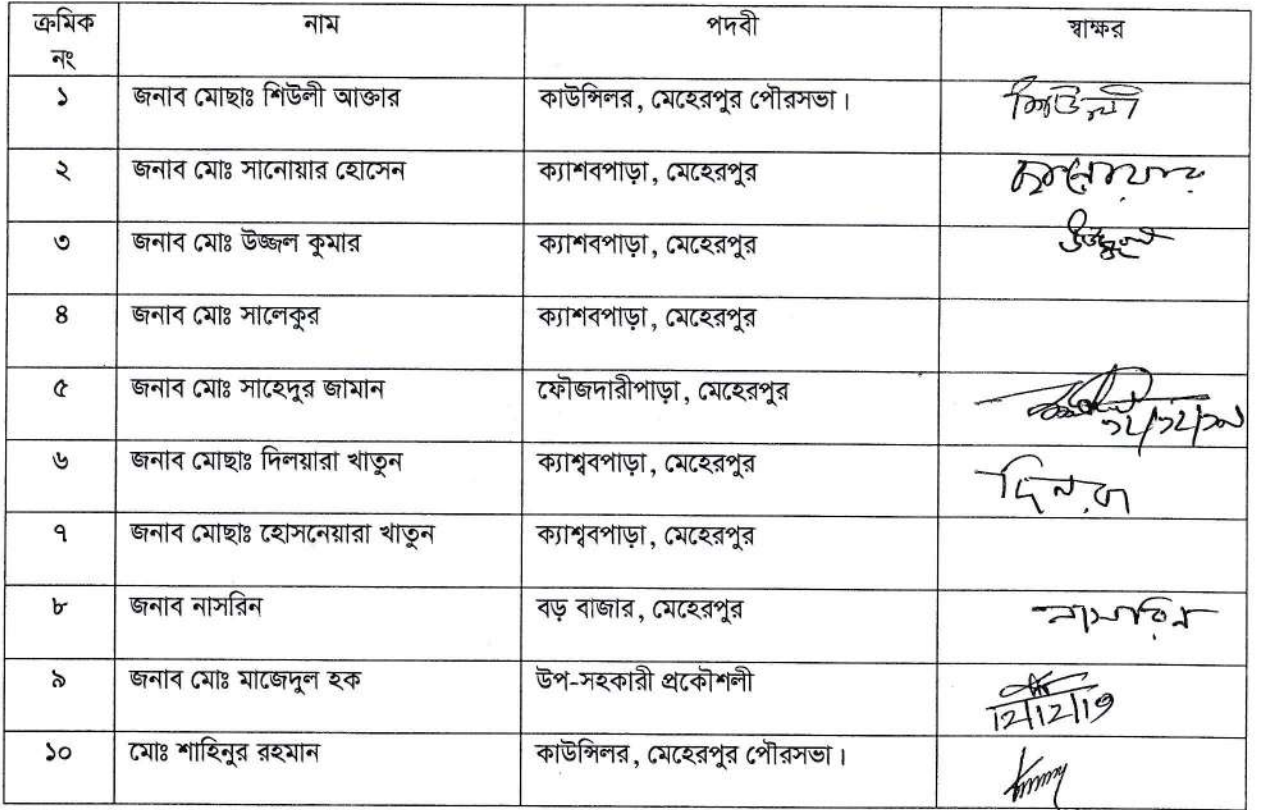 ক্রমিক নং নাম পদবী স্বাক্ষর
১ জনাব মোছাঃ শিউলী আক্তার কাউন্সিলর, মেহেরপুর পৌরসভা। শিউলী
২ জনাব মোঃ সানোয়ার হোসেন ক্যাশবপাড়া, মেহেরপুর সানোয়ার
৩ জনাব মোঃ উজ্জল কুমার ক্যাশবপাড়া, মেহেরপুর উজ্জল
৪ জনাব মোঃ সালেকুর ক্যাশবপাড়া, মেহেরপুর
৫ জনাব মোঃ সাহেদুর জামান ফৌজদারীপাড়া, মেহেরপুর ১২/১২/১৯
৬ জনাব মোছাঃ দিলয়ারা খাতুন ক্যাশ্ববপাড়া, মেহেরপুর
৭ জনাব মোছাঃ হোসনেয়ারা খাতুন ক্যাশ্ববপাড়া, মেহেরপুর
৮ জনাব নাসরিন বড় বাজার, মেহেরপুর নাসরিন
৯ জনাব মোঃ মাজেদুল হক উপ-সহকারী প্রকৌশলী 12/12/19
১০ মোঃ শাহিনুর রহমান কাউন্সিলর, মেহেরপুর পৌরসভা।